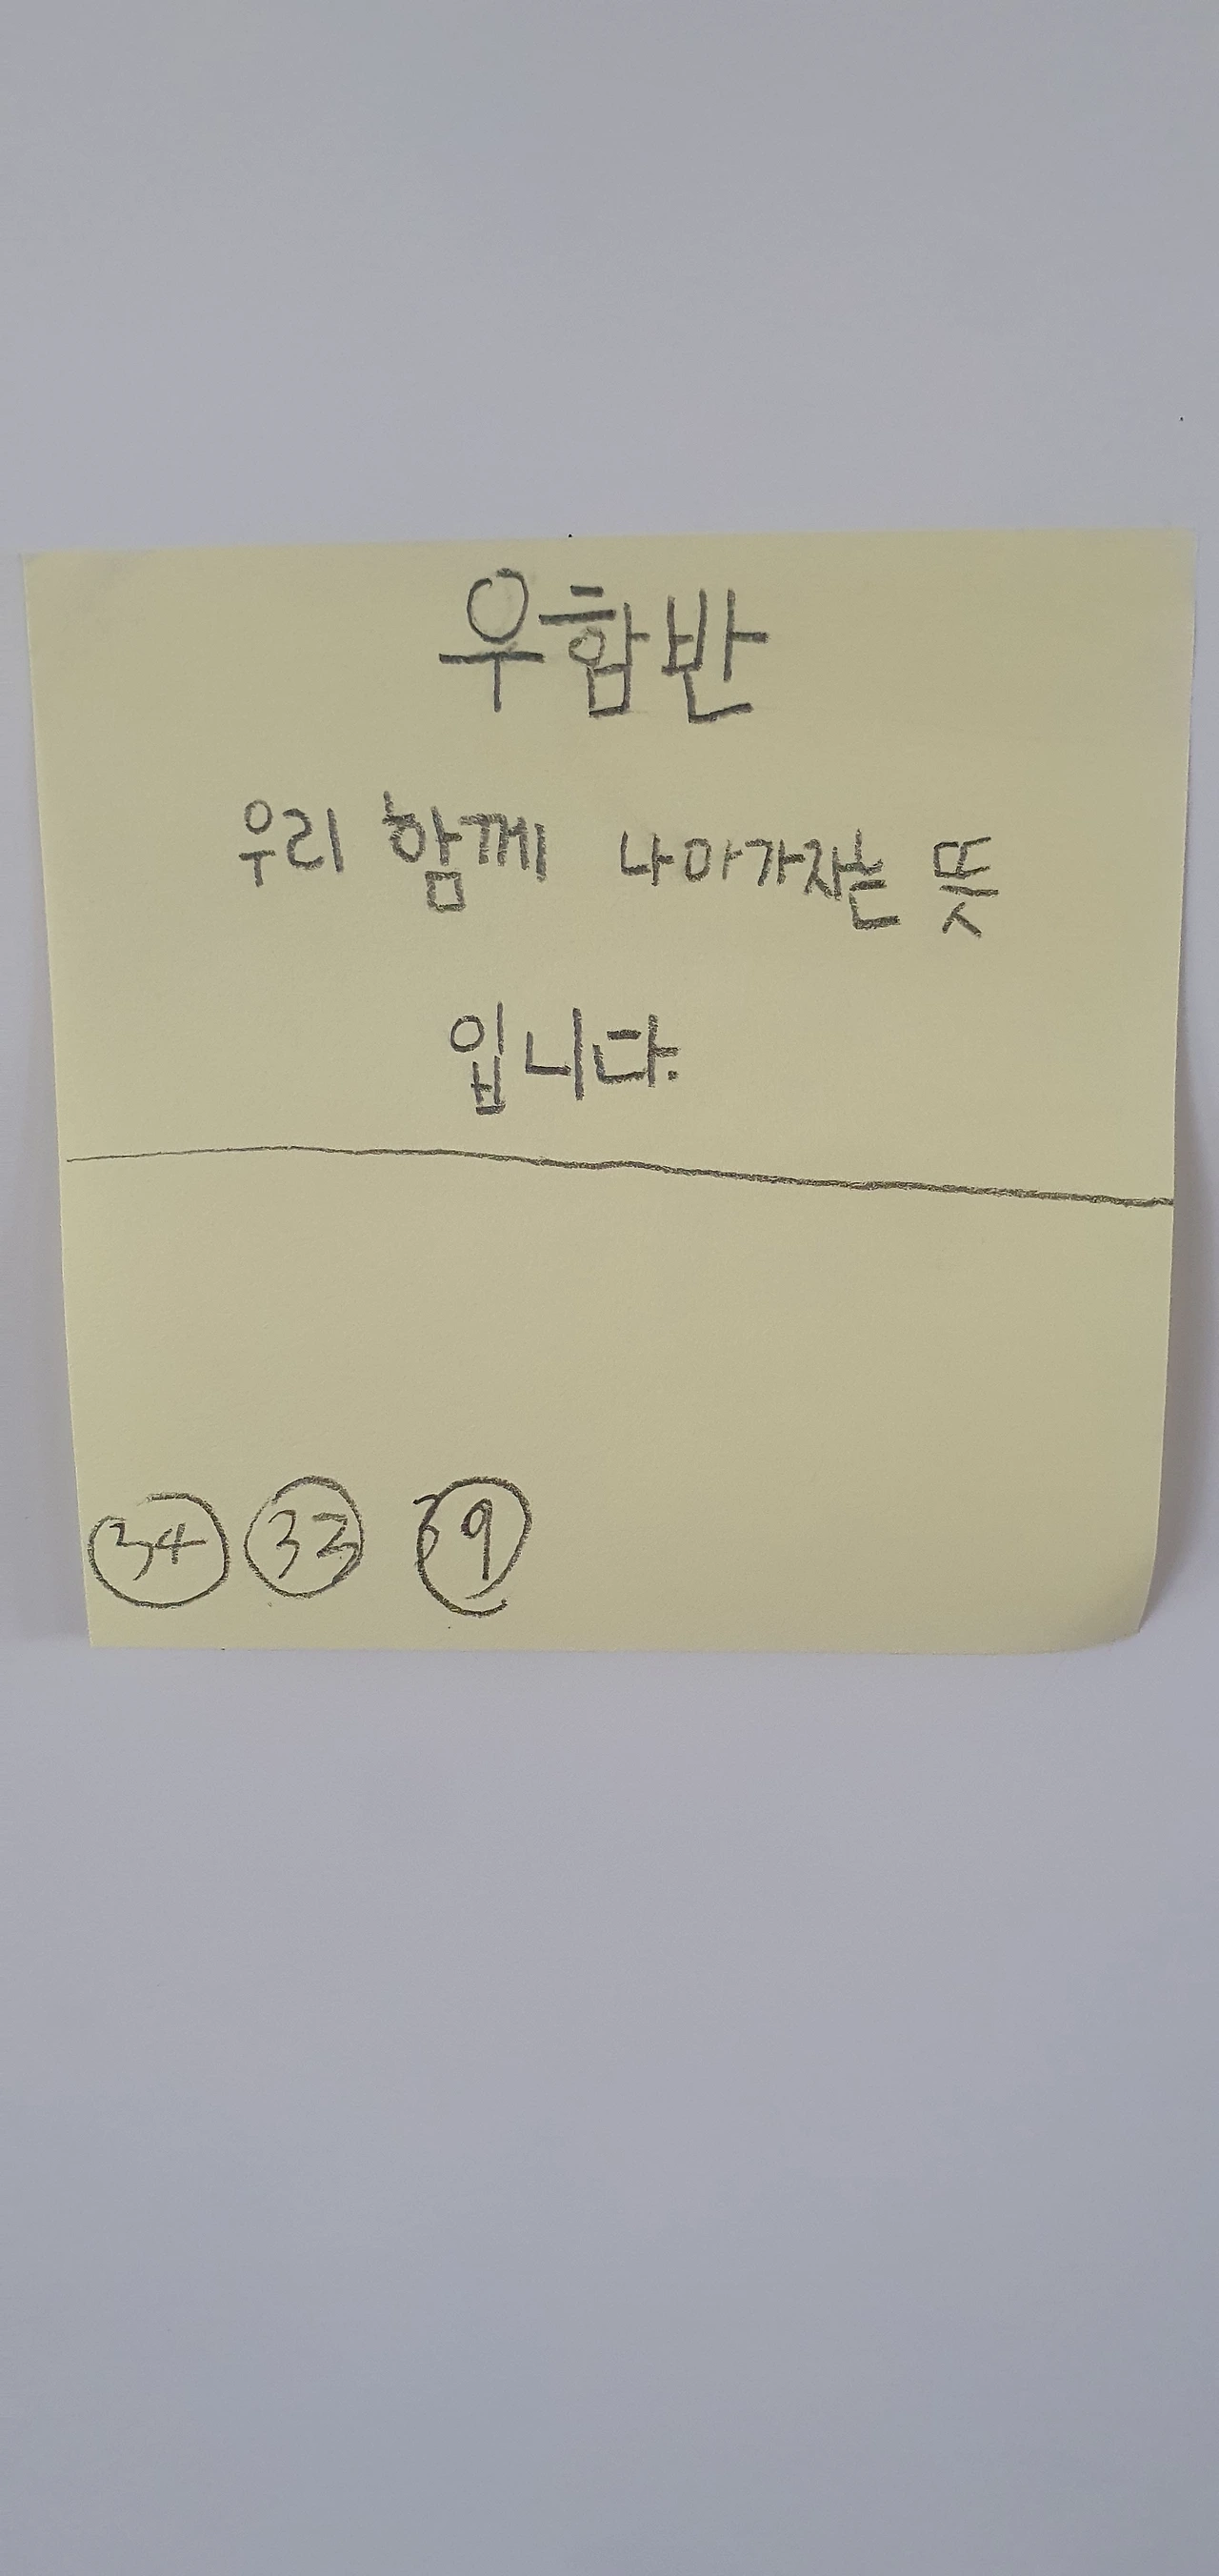 우함반
우리 함께 나아가자는 뜻
입니다.
34 33 39